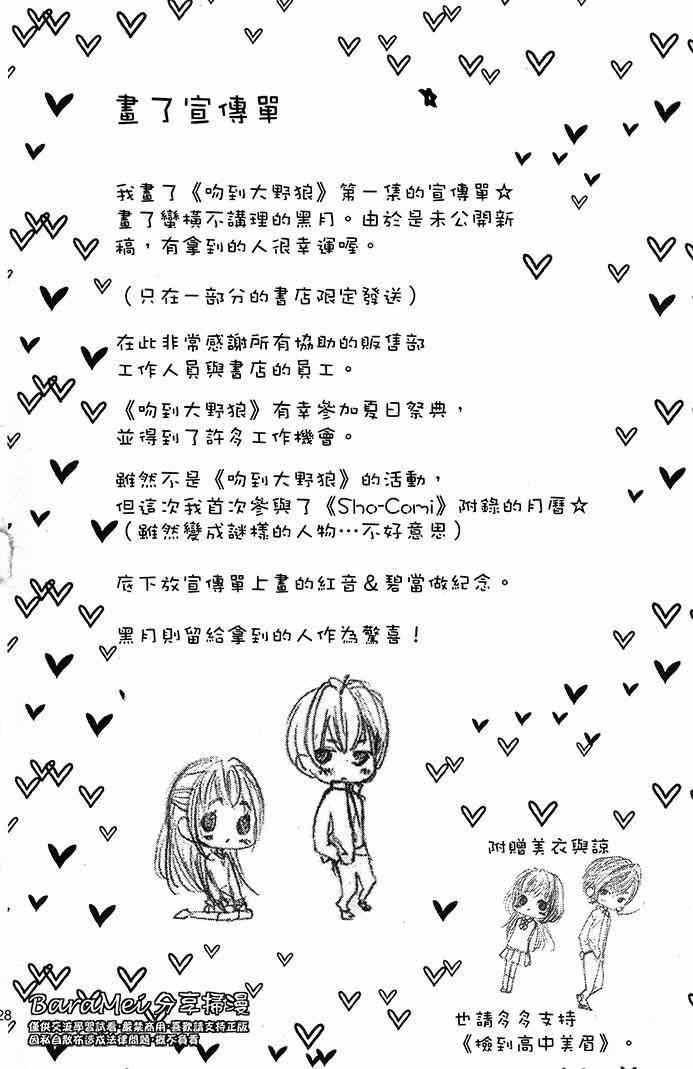 畫了宣傳單
我畫了《吻到大野狼》第一集的宣傳單☆
畫了蠻橫不講理的黑月。由於是未公開新
稿，有拿到的人很幸運喔。
（只在一部分的書店限定發送）
在此非常感謝所有協助的販售部
工作人員與書店的員工。
《吻到大野狼》有幸參加夏日祭典，
並得到了許多工作機會。
雖然不是《吻到大野狼》的活動，
但這次我首次參與了《Sho-Comi》附錄的月曆☆
（雖然變成謎樣的人物…不好意思）
底下放宣傳單上畫的紅音＆碧當做紀念。
黑月則留給拿到的人作為驚喜！
附贈美衣與諒
也請多多支持
《撿到高中美眉》。
28
BaraMei 分享掃漫
僅供交流學習試看·嚴禁商用·喜歡請支持正版
因私自散布造成法律問題·概不負責